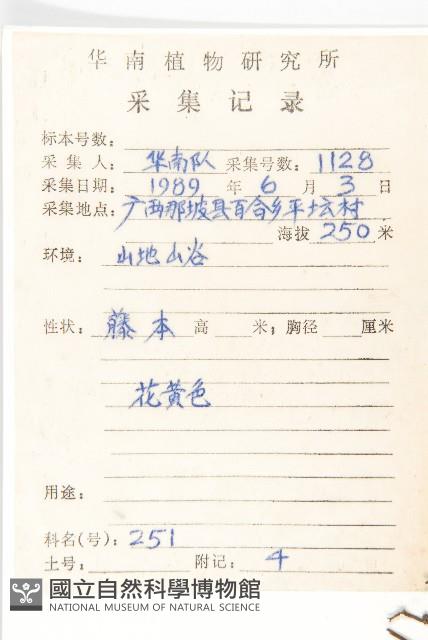 华南植物研究所
采集记录
标本号数：
采集人：华南队 采集号数：1128
采集日期：1989年6月3日
采集地点：广西那坡县百合乡平坛村
海拔250米
环境：山地山谷
性状：藤本 高 米；胸径 厘米
花黄色
用途：
科名(号)：251
土号： 附记：4
國立自然科學博物館
NATIONAL MUSEUM OF NATURAL SCIENCE